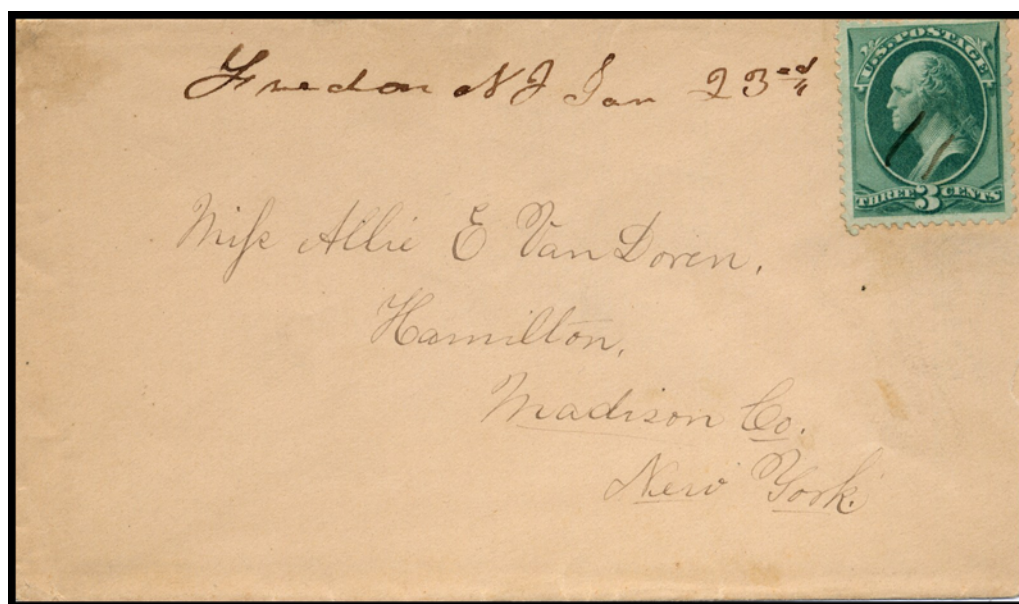 Fredon N J Jan 23rd
U.S. POSTAGE
THREE 3 CENTS
Miss Allie E Van Doren.
Hamilton,
Madison Co.
New York.